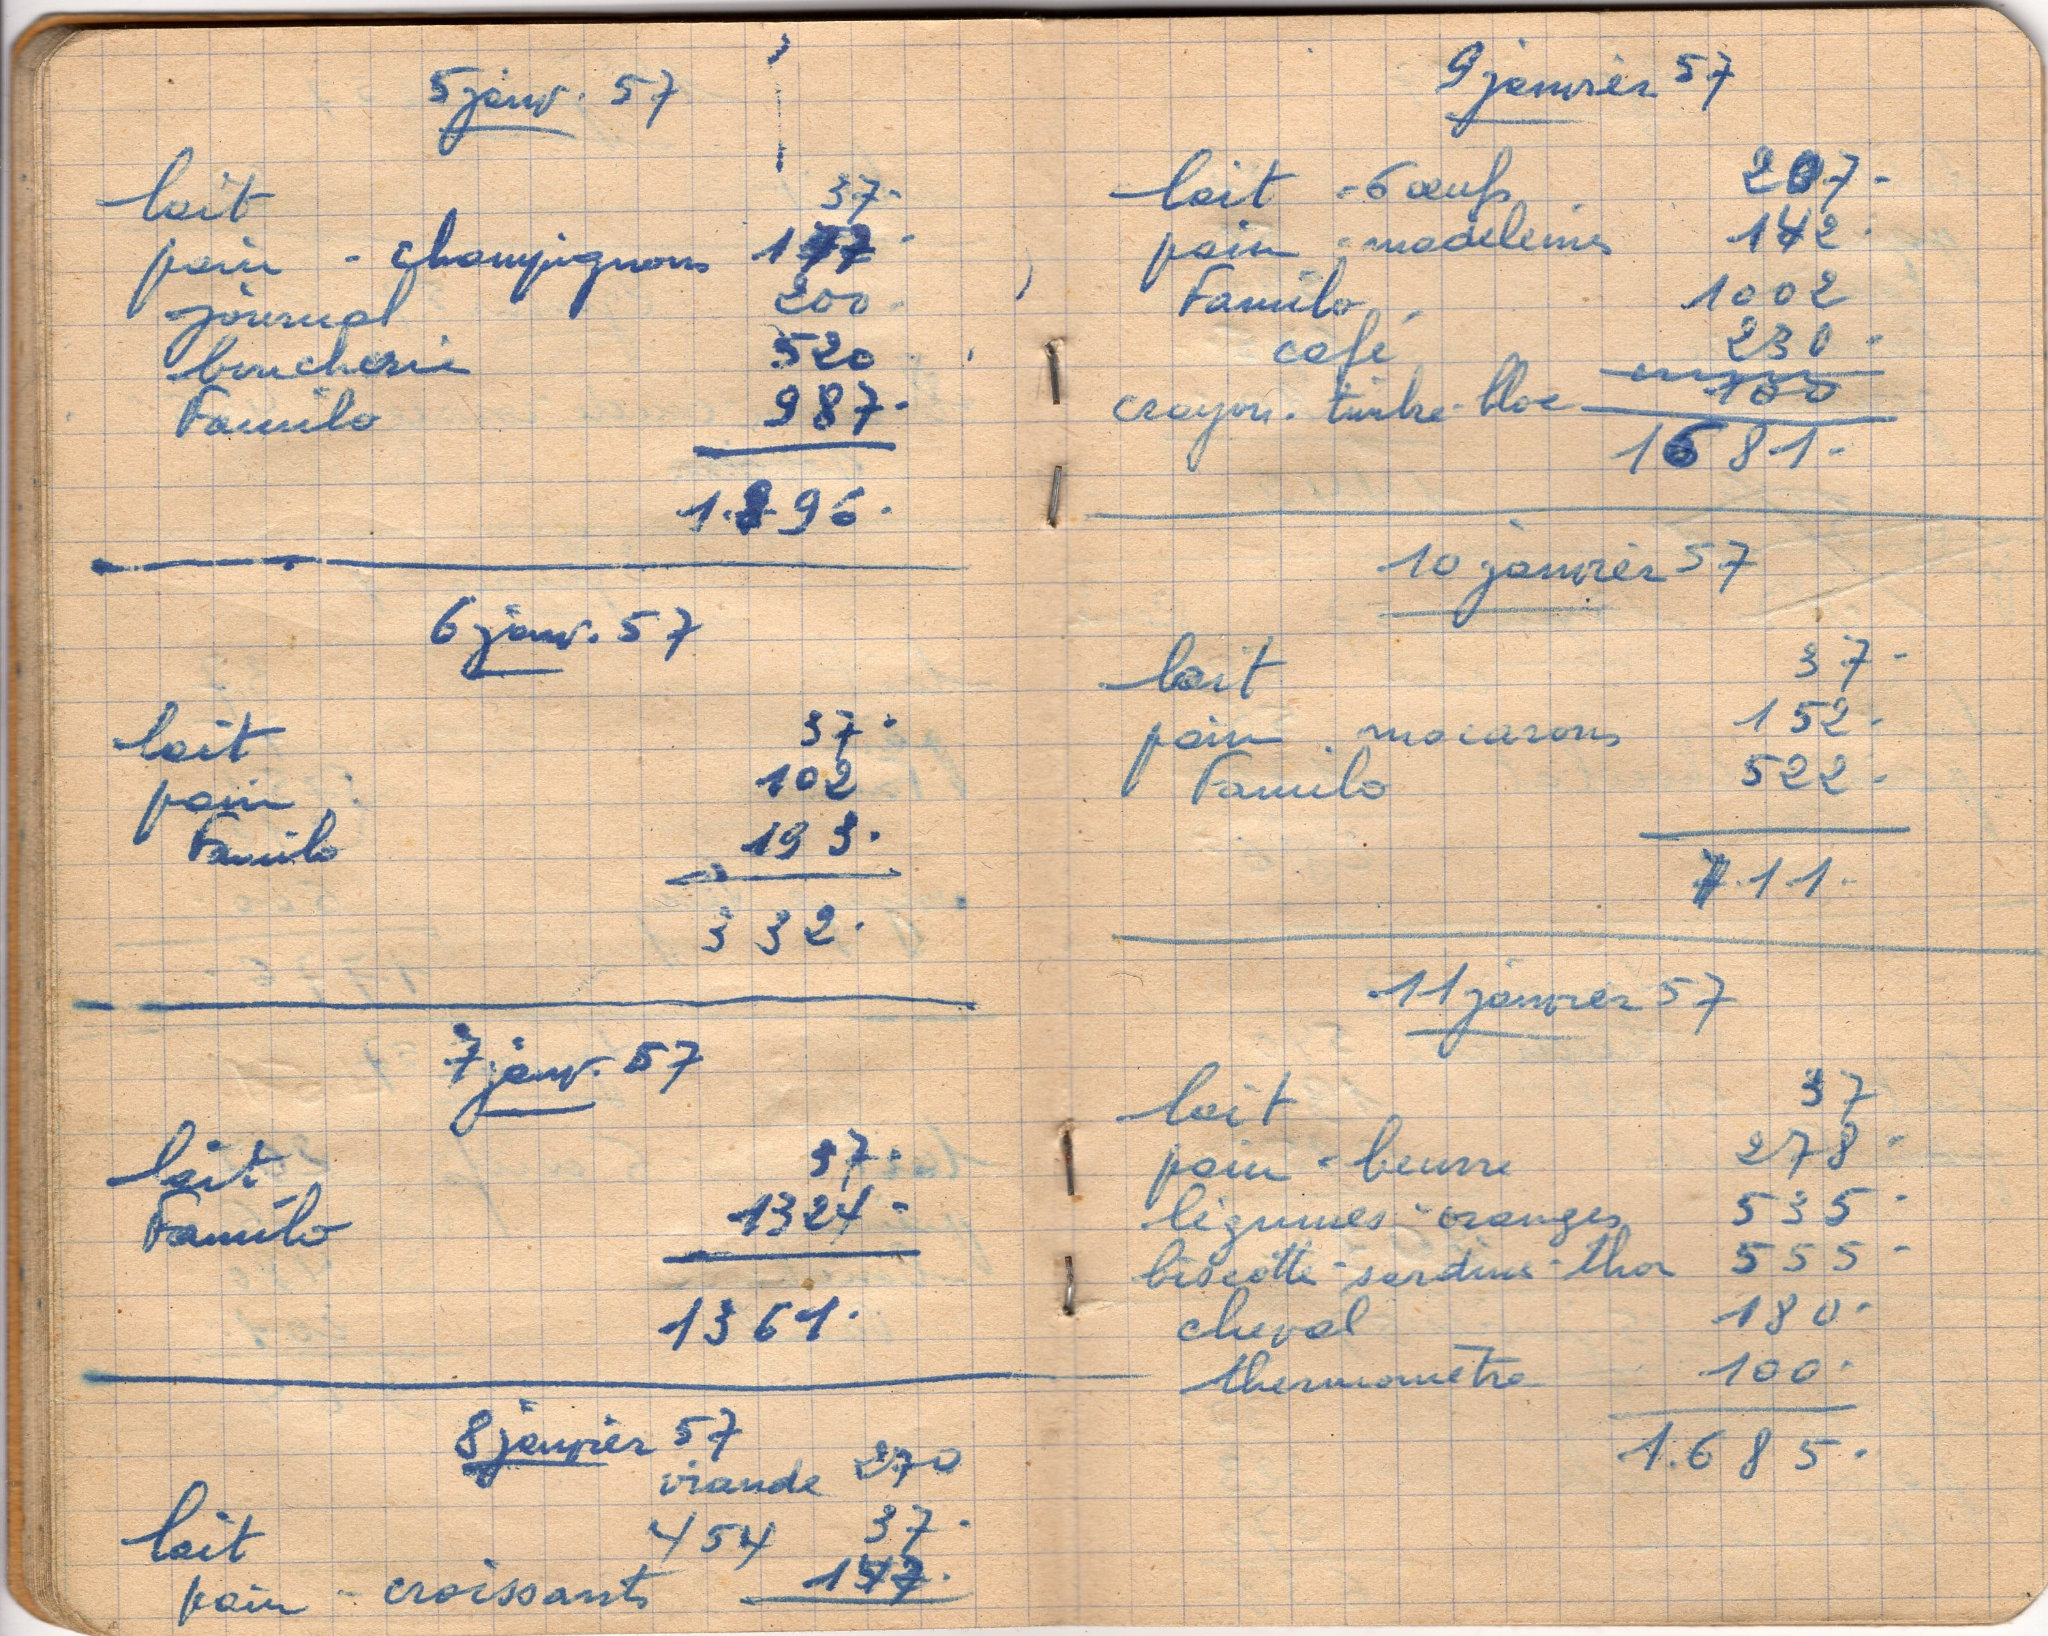 5 janv. 57
lait 37.
pain - champignons
journal 200.
boucherie 520
Familo 987.
1.896.
6 janv. 57
lait 37.
pain 102
Familo 193.
332.
7 janv. 57
lait 37.
Familo 1324.
1361.
8 janvier 57
viande 270
lait 454 37.
pain - croissants 147.
9 janvier 57
lait - 6 œufs 207.
pain - madeleines 142.
Familo 1002
café 230.
crayon. timbre - bloc 100
1681.
10 janvier 57
lait 37.
pain - macarons 152.
Familo 522.
711.
11 janvier 57
lait 37
pain - beurre 278.
légumes - oranges 535.
biscotte - sardine - thon 555.
cheval 180.
thermomètre 100.
1.685.